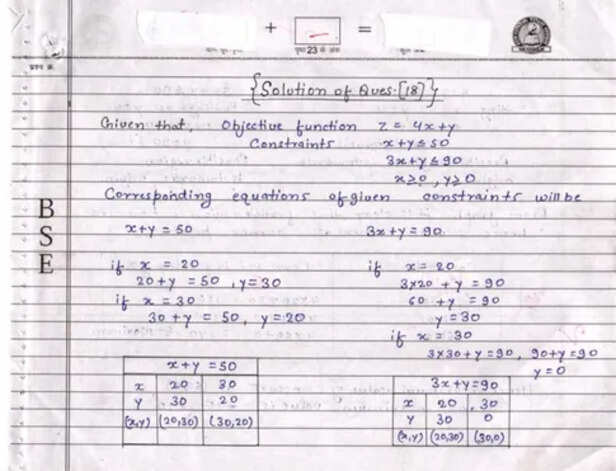 + =
पृष्ठ 23 के अंक
प्रश्न क्र.
{Solution of Ques.[18]}
Given that, Objective function Z = 4x+y
Constraints x+y≤50
3x+y≤90
x≥0, y≥0
Corresponding equations of given constraints will be
B
S
E
x+y = 50 3x+y = 90
if x = 20 if x = 20
20+y = 50, y=30 3x20 + y = 90
if x = 30 60 + y = 90
30+y = 50, y=20 y = 30
if x = 30
3x30+y=90, 90+y=90
y=0
x+y = 50
x 20 30
y 30 20
(x,y) (20,30) (30,20)
3x+y=90
x 20 30
y 30 0
(x,y) (20,30) (30,0)